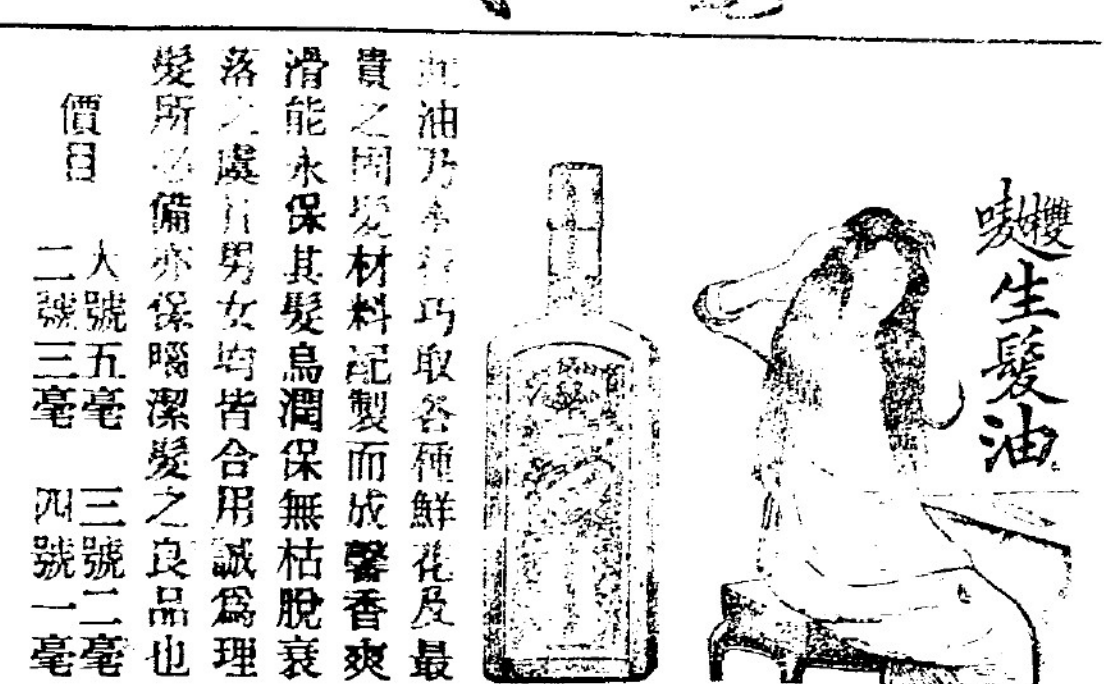 雙妹嘜
生髮油
此油乃本行巧取各種鮮花及最
貴之固髮材料配製而成馨香爽
滑能永保其髮烏潤保無枯脫衰
落之虞且男女均皆合用誠爲理
髮所必備亦保腦潔髮之良品也
價目
大號五毫 三號二毫
二號三毫 四號一毫